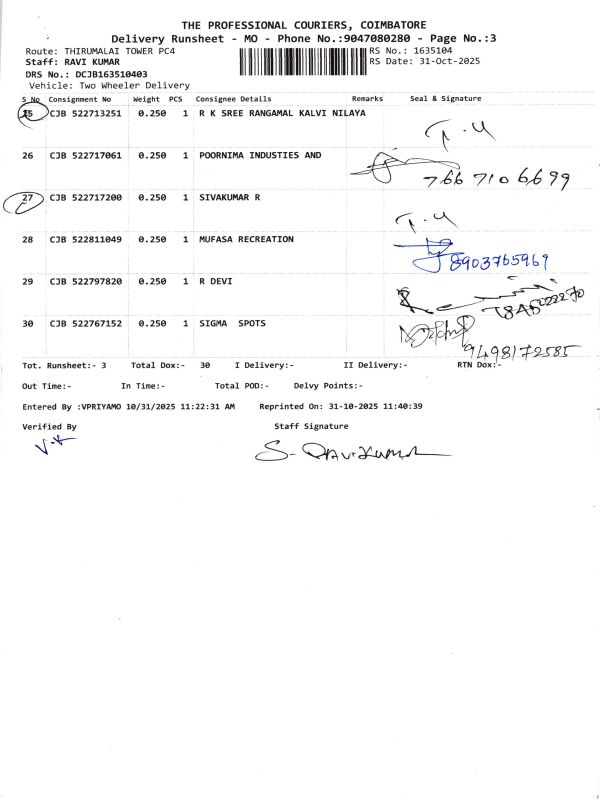 THE PROFESSIONAL COURIERS, COIMBATORE
Delivery Runsheet - MO - Phone No.:9047080280 - Page No.:3
Route: THIRUMALAI TOWER PC4 RS No.: 1635104
Staff: RAVI KUMAR RS Date: 31-Oct-2025
DRS No.: DCJB163510403
Vehicle: Two Wheeler Delivery
S No Consignment No Weight PCS Consignee Details Remarks Seal & Signature
25 CJB 522713251 0.250 1 R K SREE RANGAMAL KALVI NILAYA
T.U
26 CJB 522717061 0.250 1 POORNIMA INDUSTIES AND
766 710 6699
27 CJB 522717200 0.250 1 SIVAKUMAR R
T.U
28 CJB 522811049 0.250 1 MUFASA RECREATION
8903765969
29 CJB 522797820 0.250 1 R DEVI
30 CJB 522767152 0.250 1 SIGMA SPOTS
9498172585
Tot. Runsheet:- 3 Total Dox:- 30 I Delivery:- II Delivery:- RTN Dox:-
Out Time:- In Time:- Total POD:- Delvy Points:-
Entered By :VPRIYAMO 10/31/2025 11:22:31 AM Reprinted On: 31-10-2025 11:40:39
Verified By Staff Signature